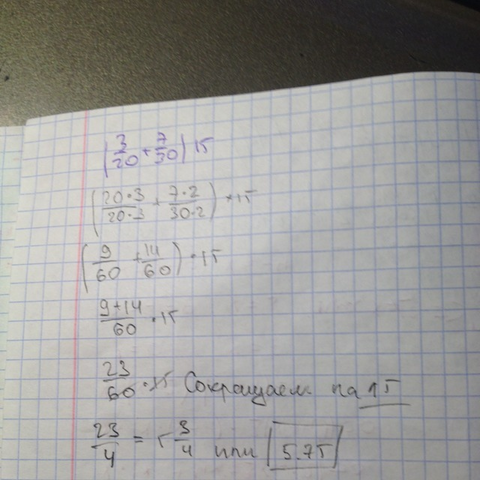 (3/20 + 7/30) 15
(20·3/20·3 + 7·2/30·2) · 15
(9/60 + 14/60) · 15
9+14/60 · 15
23/60 · 15 Сокращаем на 15
23/4 = 5 3/4 или 5.75